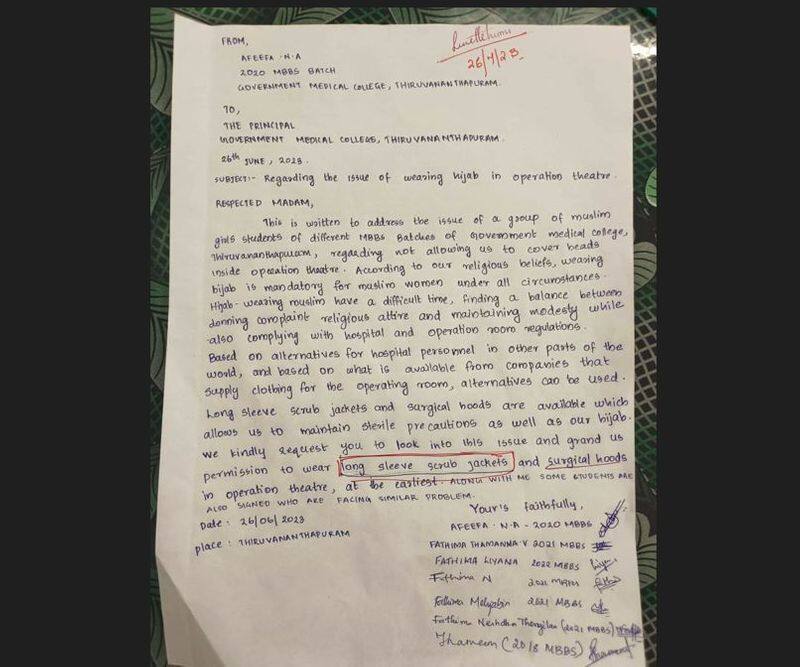 FROM,
AFEEFA . N . A
2020 MBBS BATCH
GOVERNMENT MEDICAL COLLEGE, THIRUVANANTHAPURAM.
26/4/23
TO,
THE PRINCIPAL
GOVERNMENT MEDICAL COLLEGE, THIRUVANANTHAPURAM.
26th JUNE, 2023.
SUBJECT:- Regarding the issue of wearing hijab in operation theatre.
RESPECTED MADAM,
This is written to address the issue of a group of muslim
girls students of different MBBS Batches of Government medical college,
Thiruvananthapuram, regarding not allowing us to cover heads
inside operation theatre. According to our religious beliefs, wearing
hijab is mandatory for muslim women under all circumstances.
Hijab-wearing muslim have a difficult time, finding a balance between
donning complaint religious attire and maintaining modesty while
also complying with hospital and operation room regulations.
Based on alternatives for hospital personnel in other parts of the
world, and based on what is available from companies that
supply clothing for the operating room, alternatives can be used.
Long sleeve scrub jackets and surgical hoods are available which
allows us to maintain sterile precautions as well as our hijab.
We kindly request you to look into this issue and grand us
permission to wear long sleeve scrub jackets and surgical hoods
in operation theatre, at the earliest. ALONG WITH ME SOME STUDENTS ARE
ALSO SIGNED WHO ARE FACING SIMILAR PROBLEM.
Date : 26/06/2023
place : THIRUVANANTHAPURAM
Your's faithfully,
AFEEFA . N . A - 2020 MBBS
FATHIMA THAMANNA . V 2021 MBBS
FATHIMA LIYANA 2022 MBBS
Fathima N 2021 MBBS
Fathima 2021 MBBS
Fathima (2021 MBBS)
(2018 MBBS)